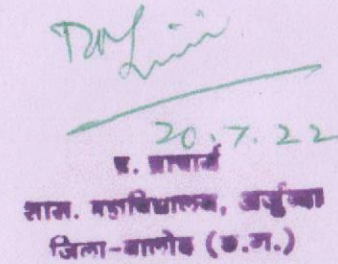 20.7.22
प्र. प्राचार्य
शास. महाविद्यालय, अर्जुन्दा
जिला-बालोद (छ.ग.)